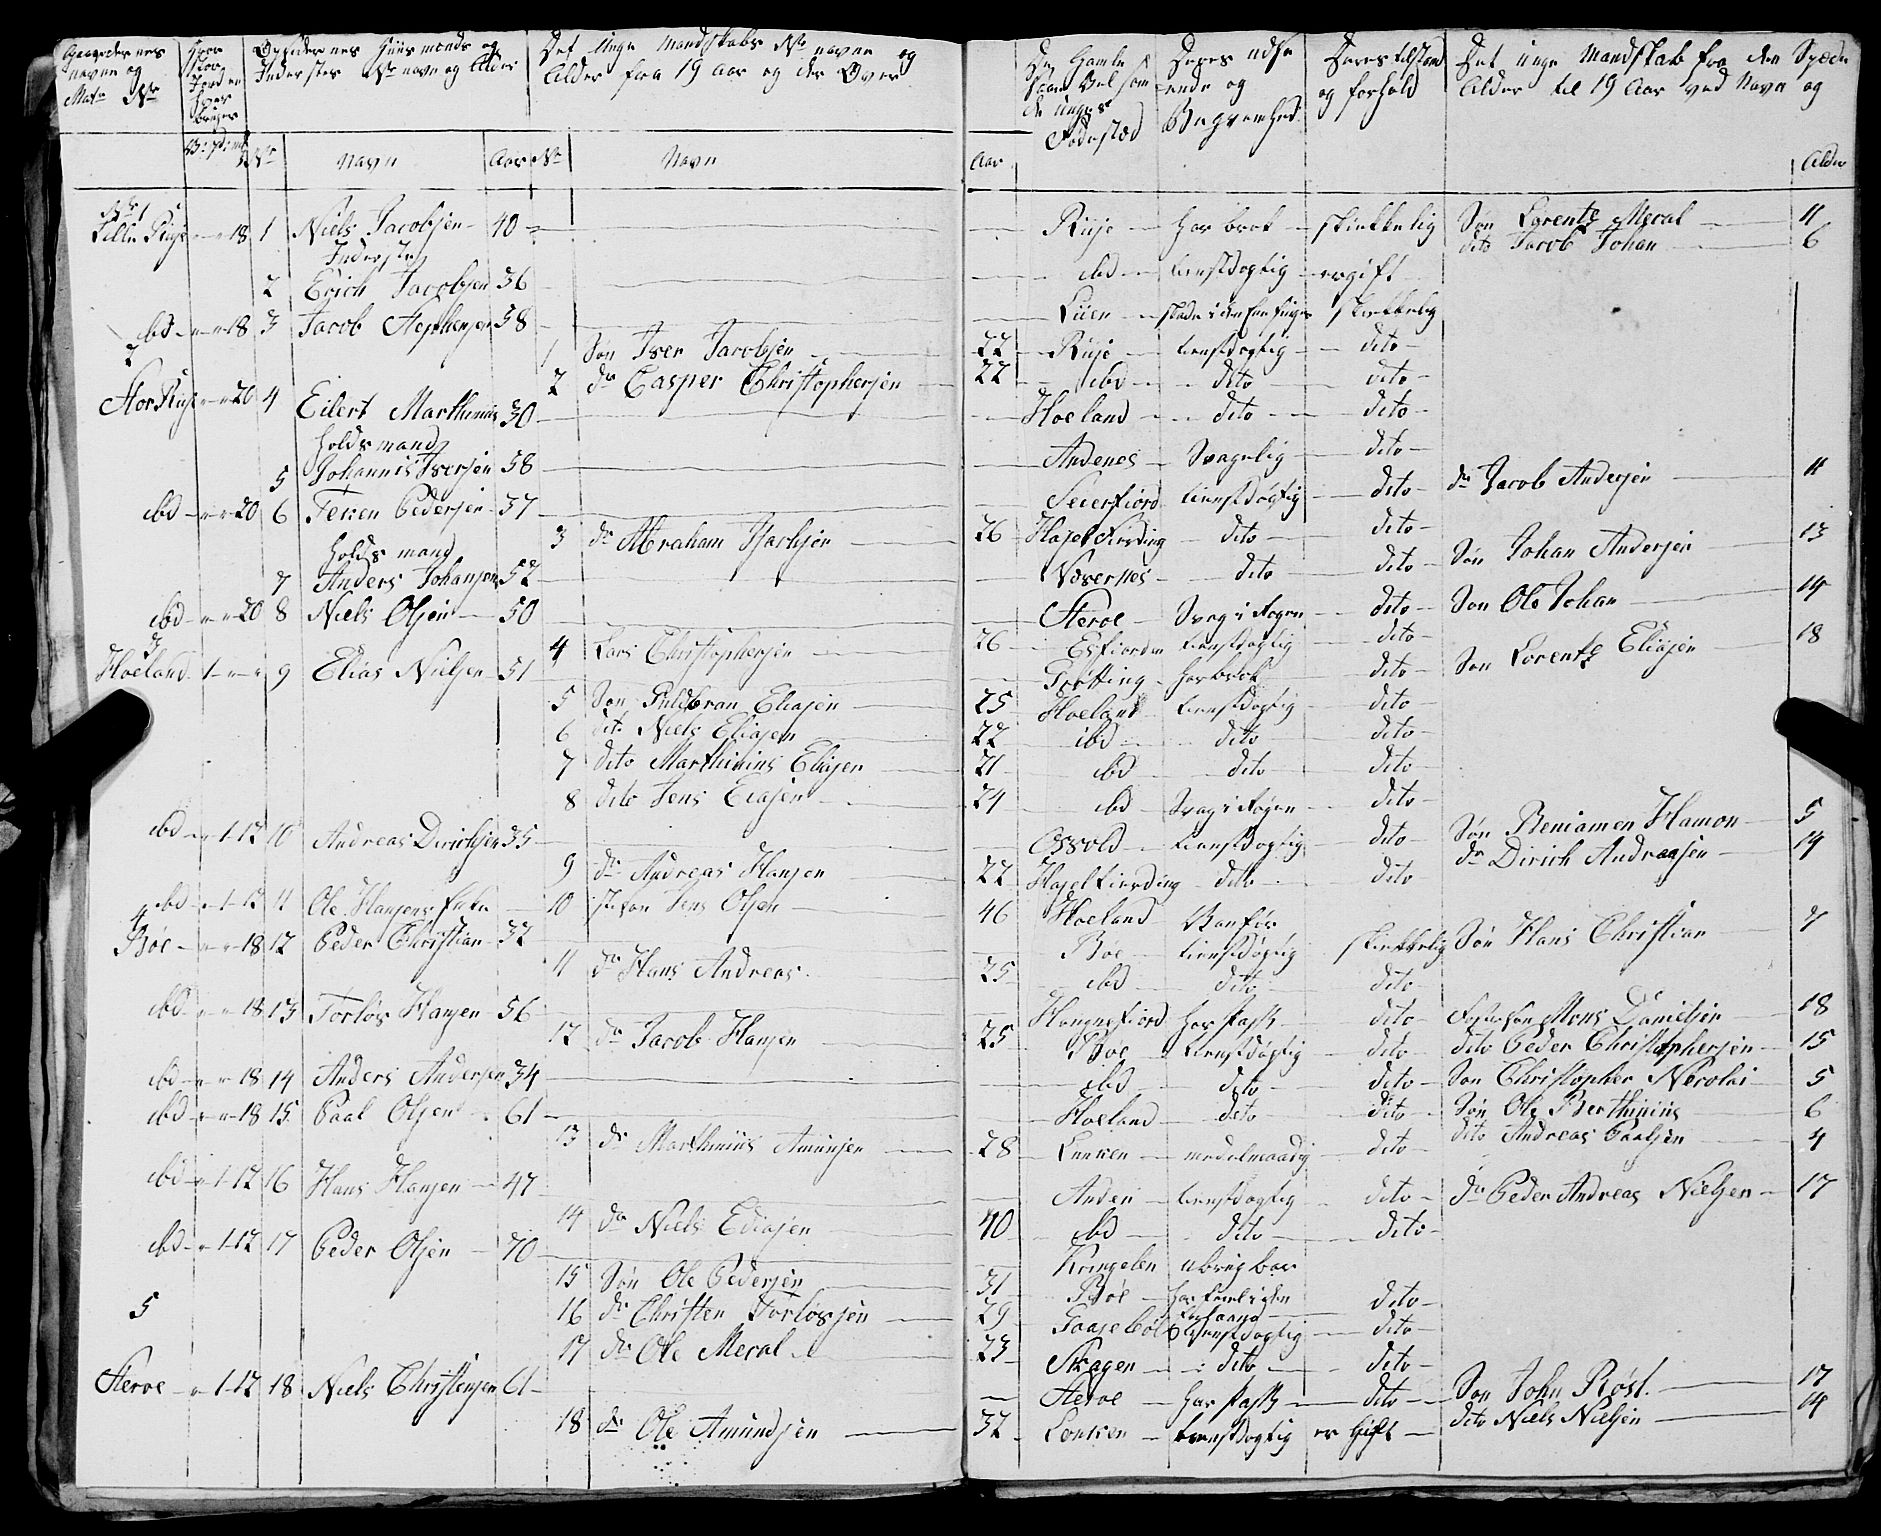 Gaardernes navne og Matr No
Hvor stor Jord en hver bruger
Opsidernes Huusmænds og Indersters No navn og Alder
Det Unge Mandskabs No navne og Alder fra 19 Aar og der Over
Aar
De Gamle saavel som de unges Fødestæd
Deres udseende og Beqvemhed
Deres tilstand og forhold
Det unge Mandskab fra den Spæde Alder til 19 Aar ved Navn og Alder
No Navn Aar No Navn
No 1
18 1 Niels Jacobsen 40 Riise har brok skikkelig Søn Lorentz Meral 11
dito Jacob Johan 6
Inderste
2 Erich Jacobsen 36 ibd tienstdygtig er gift
ibd 18 3 Jacob Stephensen 58 skikkelig
1 Søn Iver Jacobsen 22 Riise tienstdygtig dito
2
2 do Casper Christophersen 22 ibd dito dito
Stor Riise 20 4 Eilert Marthinus 30 Hoeland dito dito
holdsmand
5 Johannis Iversen 58 Andenes Svagelig dito
ibd 20 6 Pedersen 37 Seierfiord tienstdygtig dito do Jacob Andersen 11
3 do Abraham Isachsen 26 Hasel Fierding dito dito
holdsmand
7 Anders Johansen 52 Næsernes dito dito Søn Johan Andersen 13
ibd 20 8 Niels Olsen 50 Steroe Svag i Øgene dito Søn Ole Johan 14
3
4 Lars Christophersen 26 Esfiorden tienstdygtig dito
Hoeland 1 9 Elias Nielsen 51 har brok dito Søn Lorentz Eliasen 18
5 Søn Hildbran Eliasen 25 Hoeland tienstdygtig dito
6 dito Niels Eliasen 22 ibd dito dito
7 dito Marthinius Eliasen 21 ibd dito dito
8 dito Jens Eliasen 24 ibd Svag i Øgene dito
ibd 1-12 10 Andreas Dirichsen 35 Osvold tienstdygtig dito Søn Beniamen Hamon 5
do Dirich Andreasen 14
9 do Andreas Hansen 22 Hasel fierding dito dito
ibd 1-12 11 Ole Hansens Enke 10 Jens Olsen 46 Hoeland Vanfør
4
Bøe 18 12 Peder Christian 32 Bøe tienstdygtig skikkelig Søn Hans Christian 7
11 do Hans Andreas 25 ibd dito dito
ibd 18 13 Torløs Hansen 56 har Pass dito Fostersøn Mons Danielsen 18
12 do Jacob Hansen 25 Bøe tienstdygtig dito dito Peder Christophersen 15
ibd 18 14 Anders Andersen 34 ibd dito dito Søn Christopher Nicolai 5
ibd 18 15 Paal Olsen 61 Hoeland dito dito Søn Ole Berthinius 6
13 do Marthinius Amunsen 28 dito dito Andreas Paalsen 4
ibd 1-12 16 Hans Hansen 47 Anden tienstdygtig dito do Peder Andreas Nielsen 17
14 do Niels Eliasen 40 ibd dito dito
ibd 1-12 17 Peder Olsen 70 Kringelen ubrugbar
15 Søn Ole Pedersen 31 Bøe dito
16 do Christen Torløssen 29 tienstdygtig dito
17 do Ole Meral 23 Skagen dito dito
5
Steroe 1-12 18 Niels Christensen 61 Steroe har Pass dito Søn John Røst 17
dito Niels Nielsen 14
18 do Ole Amundsen 32 tienstdygtig er Gift